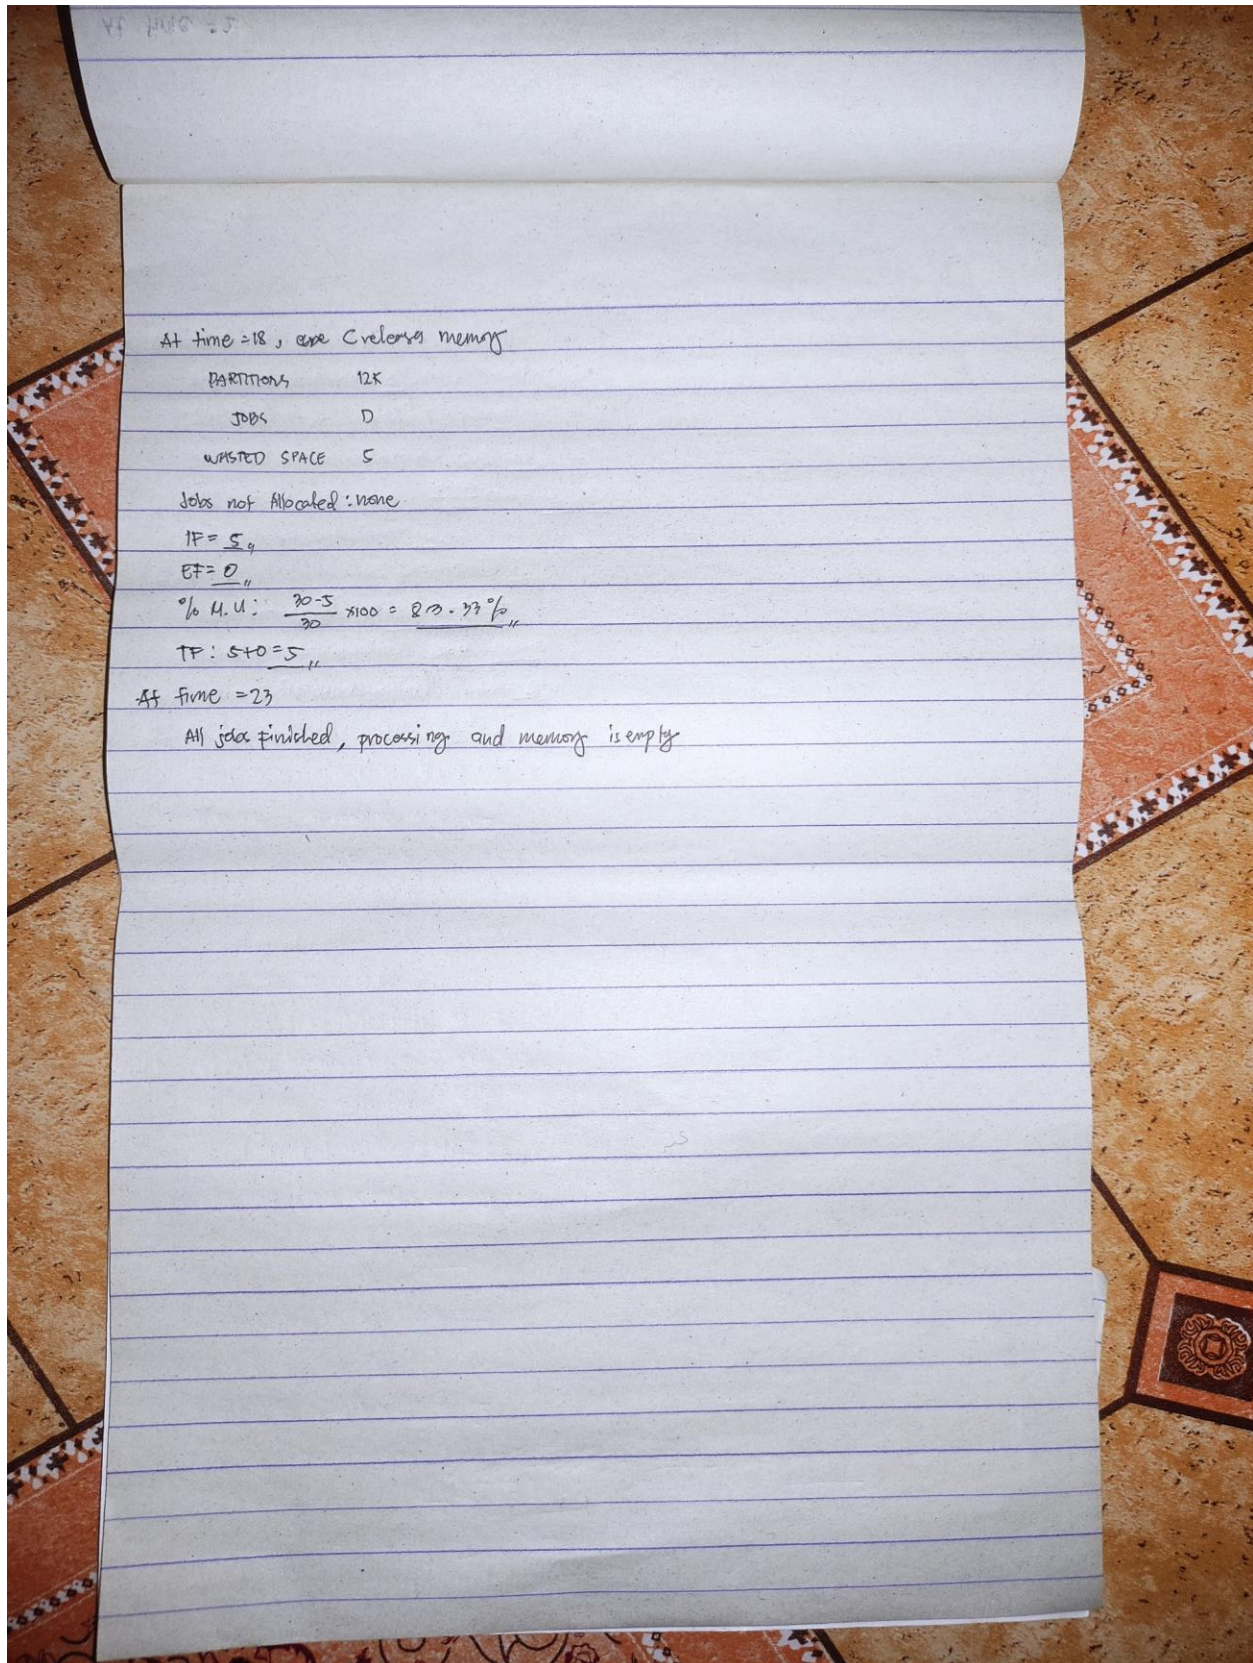 At time = 2
At time =18, Creleases memory
PARTITIONS 12K
JOBS D
WASTED SPACE 5
Jobs not Allocated : none
IF = 5
EF = 0
% M.U : 30-5/30 x100 = 83.33%
TF : 5+0=5
At time =23
All jobs finished, processing and memory is empty